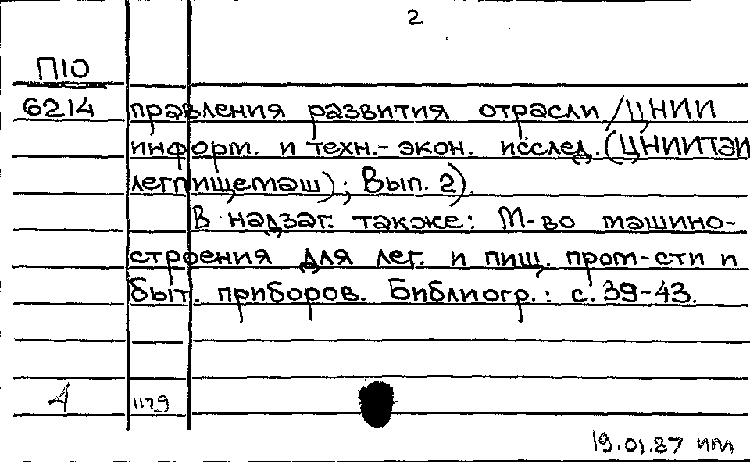 2
П10
6214 правления развития отрасли /ЦНИИ
информ. и техн.- экон. исслед. (ЦНИИТЭИ
легпищемаш); Вып. 2).
В надзаг. также: М-во машино-
строения для лег. и пищ. пром-сти и
быт. приборов. Библиогр.: с. 39-43.
А 1179
19.01.87 ип